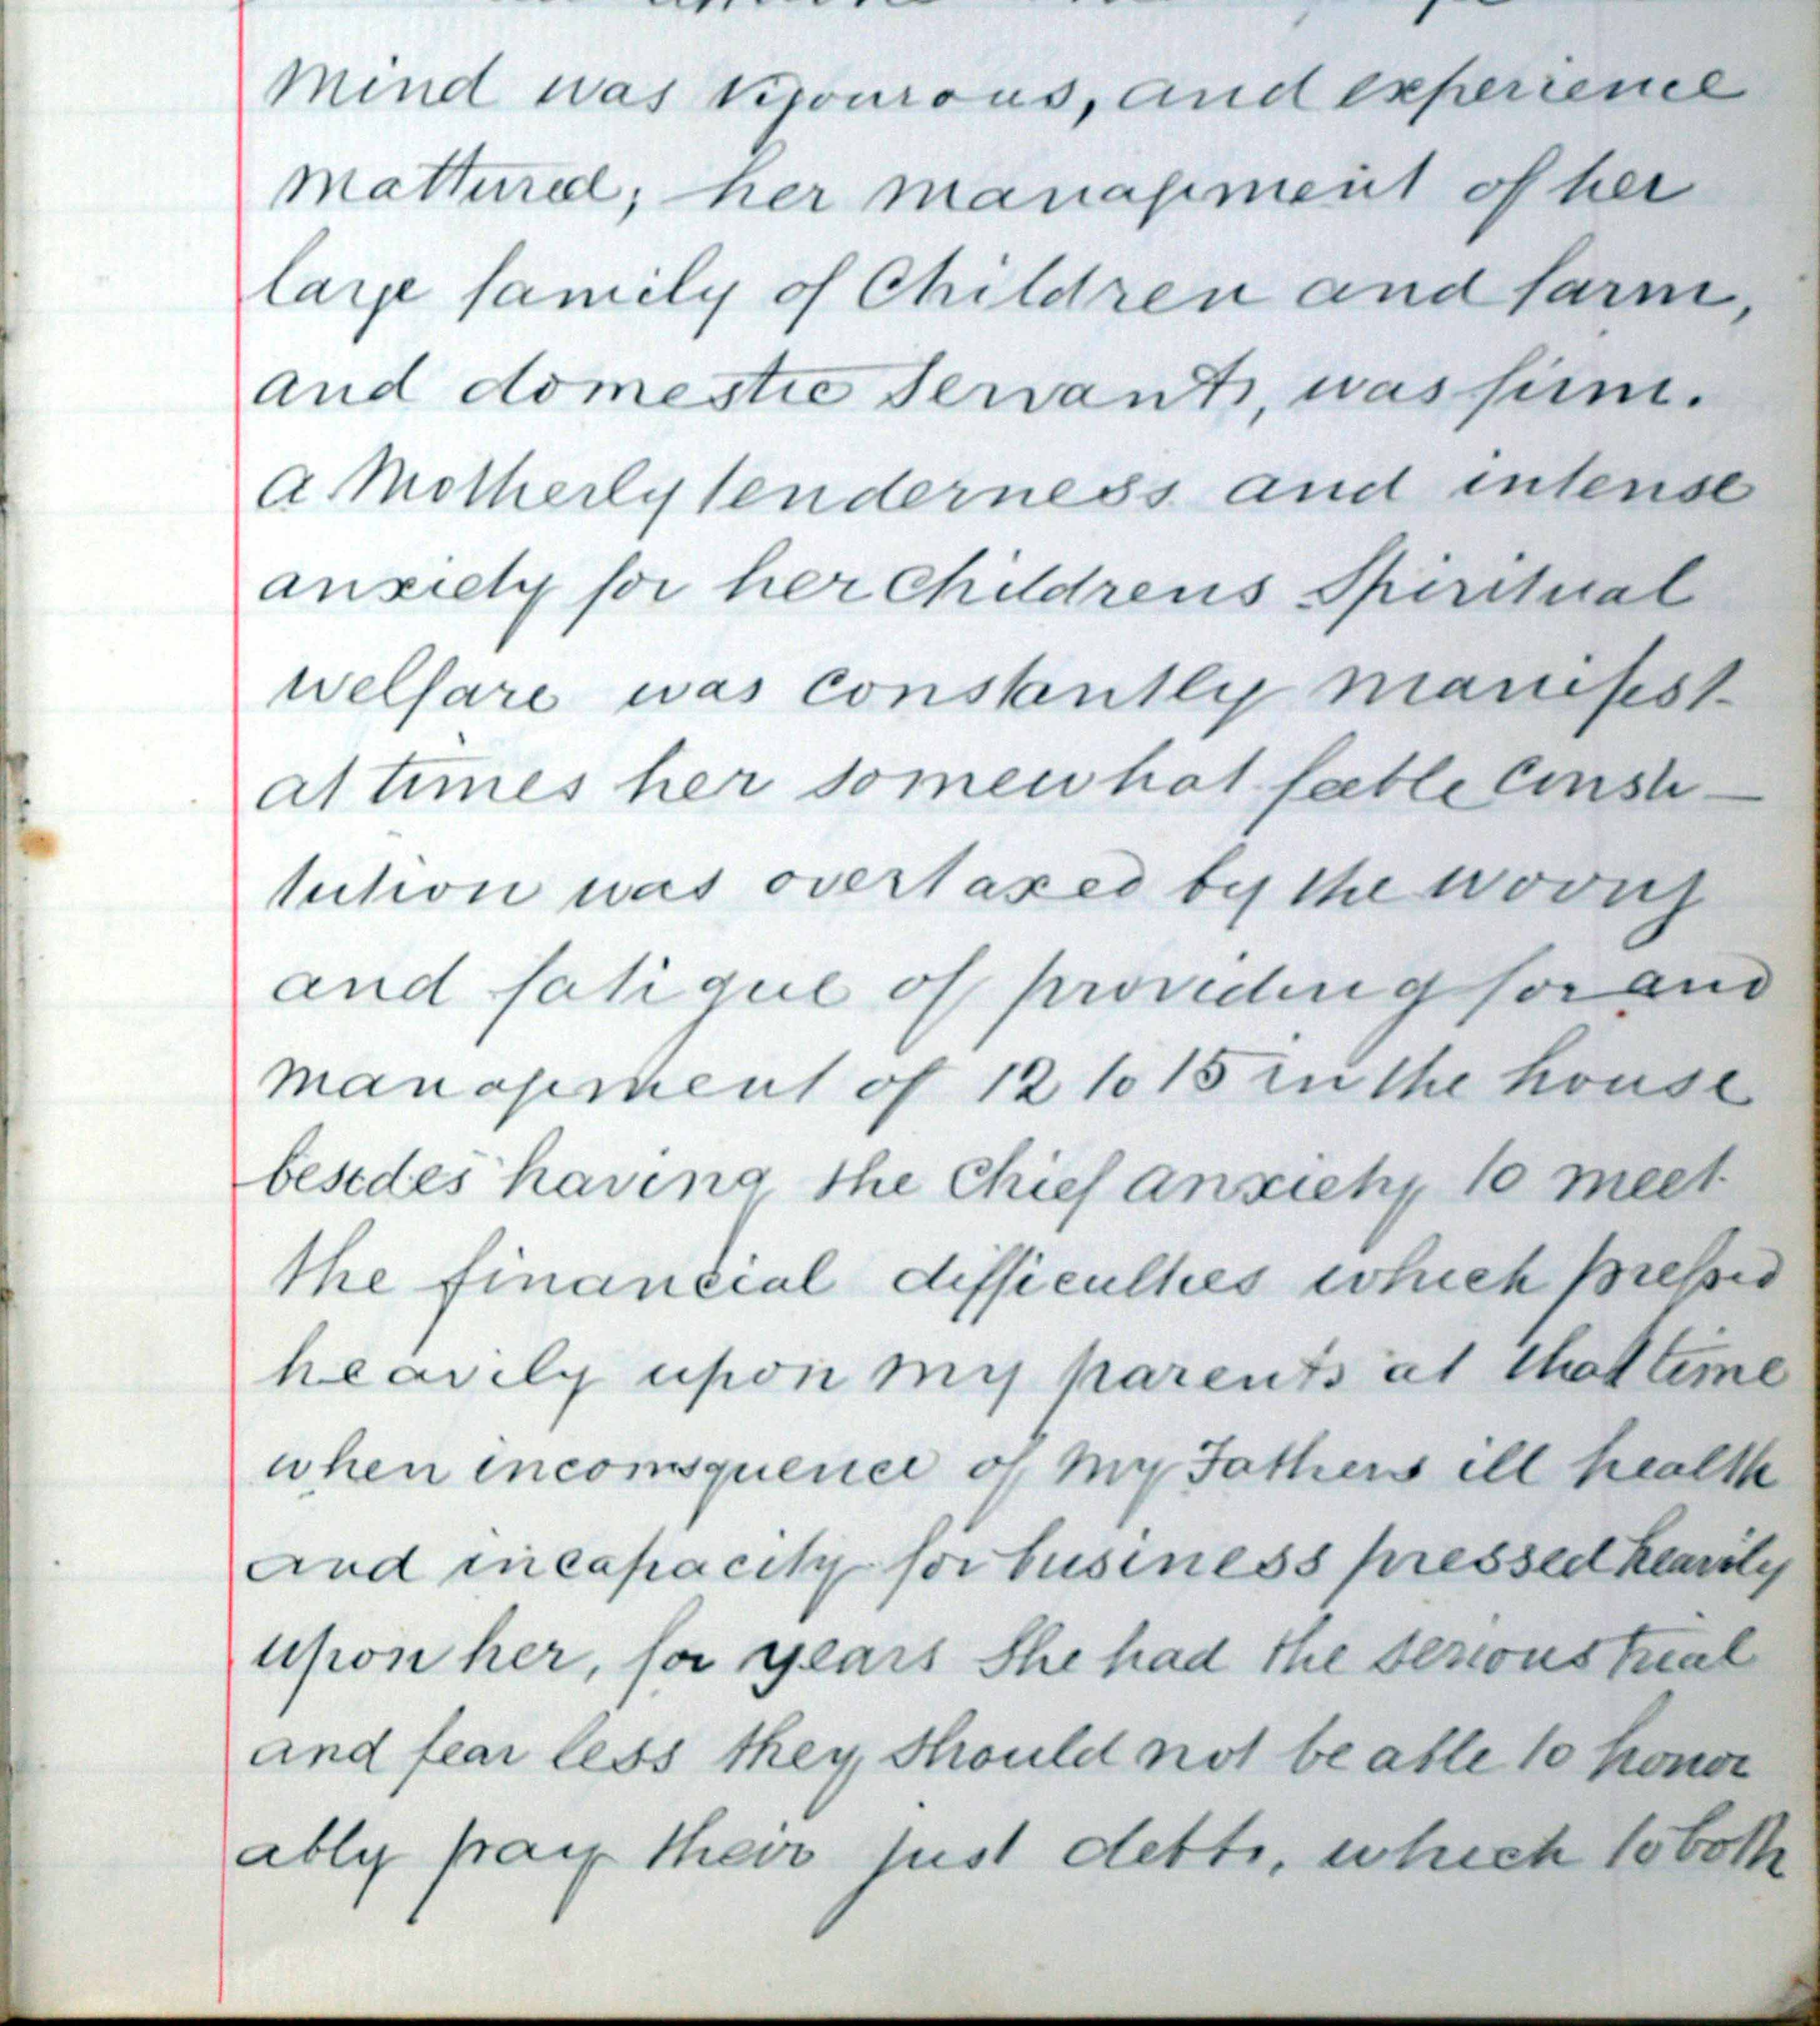 mind was vigourous, and experience
mattured; her management of her
large family of Children and farm,
and domestic Servants, was firm.
a Motherly tenderness and intense
anxiety for her Childrens Spiritual
welfare was constantly manifest
at times her somewhat feeble Consti—
tution was overtaxed by the
and fatigue of providing for and
management of 12 to 15 in the house
besides having the Chief anxiety to meet
the financial difficulties which pressed
heavily upon my parents at that time
when inconsquence of my Fathers ill health
and incapacity for business pressed heavily
upon her, for years She had the serious trial
and fear less they should not be able to honor
ably pay their just debts, which to both